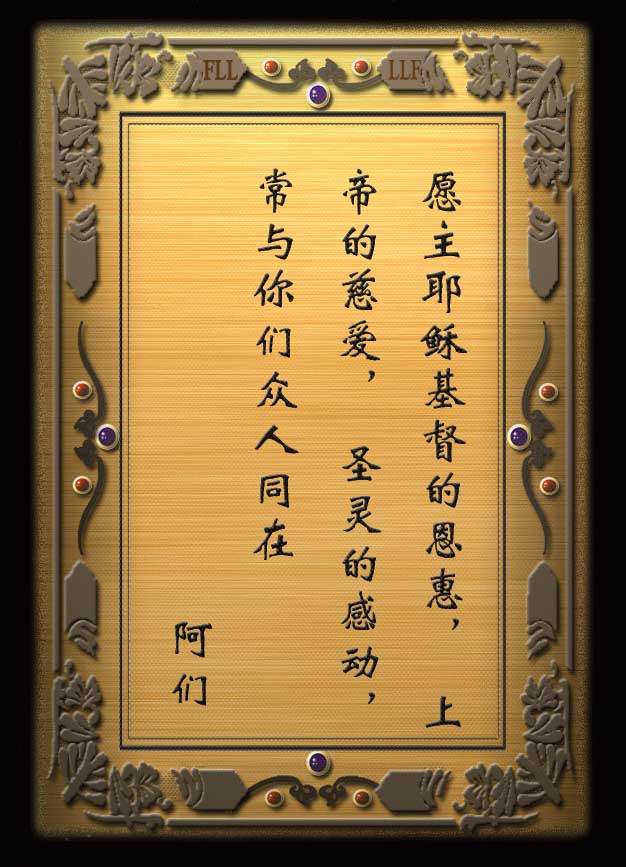 FLL
LLF
愿主耶稣基督的恩惠， 上
帝的慈爱， 圣灵的感动，
常与你们众人同在
阿们